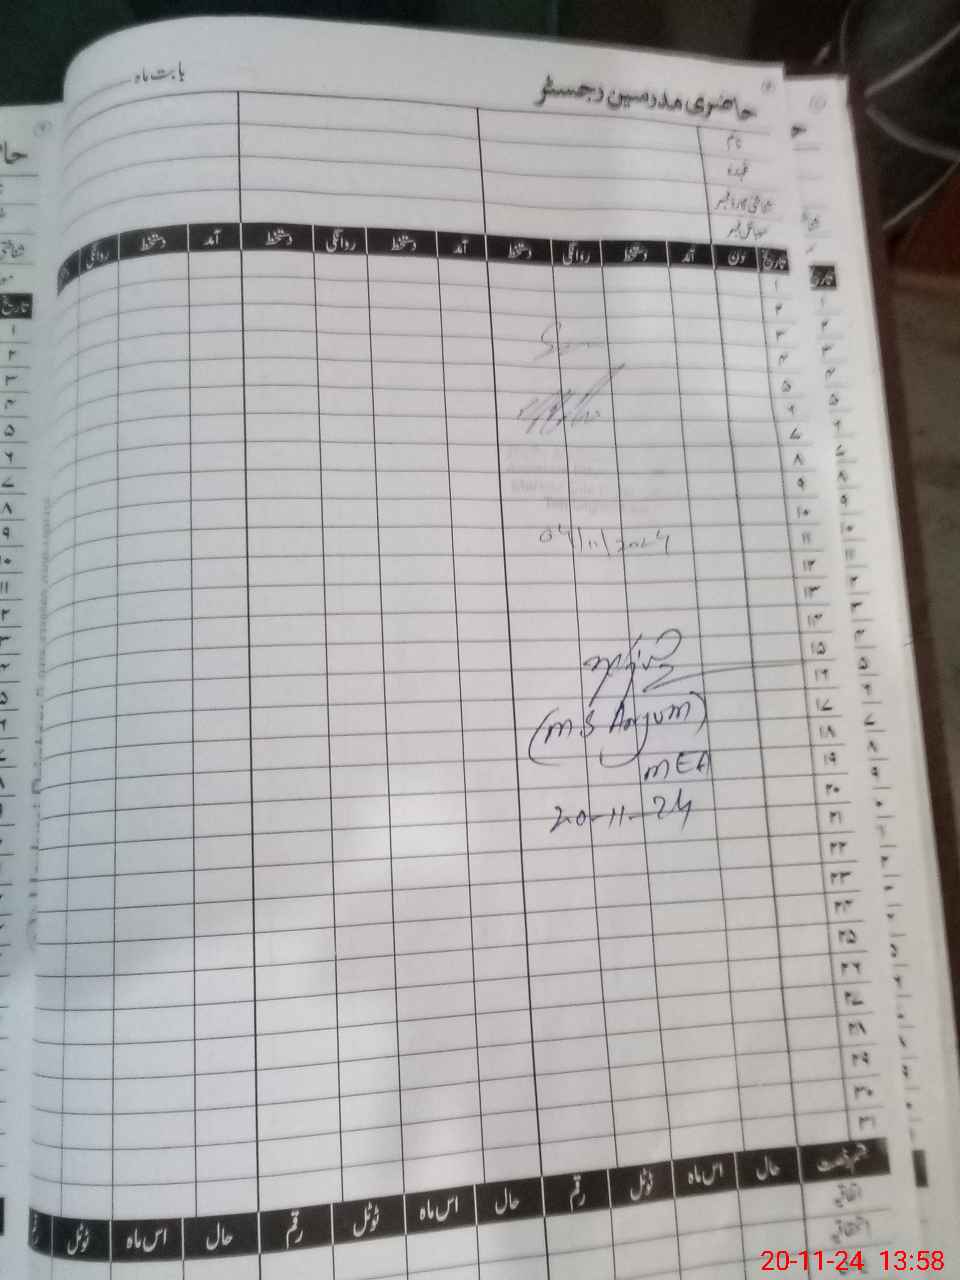 حاضری مدرسین رجسٹر
بابت ماہ
نام
عہدہ
شناختی کارڈ نمبر
موبائل نمبر
تاریخ دن آمد دستخط روانگی دستخط آمد دستخط روانگی دستخط آمد دستخط روانگی
۱
۲
۳
۴
۵
۶
۷
۸
۹
۱۰
۱۱
۱۲
۱۳
۱۴
۱۵
۱۶
۱۷
۱۸
۱۹
۲۰
۲۱
۲۲
۲۳
۲۴
۲۵
۲۶
۲۷
۲۸
۲۹
۳۰
۳۱
04/11/2024
(M.S Anjum)
MEA
20-11-24
قسم رخصت حال اس ماہ ٹوٹل رقم حال اس ماہ ٹوٹل رقم حال اس ماہ ٹوٹل
اتفاقیہ
20-11-24 13:58